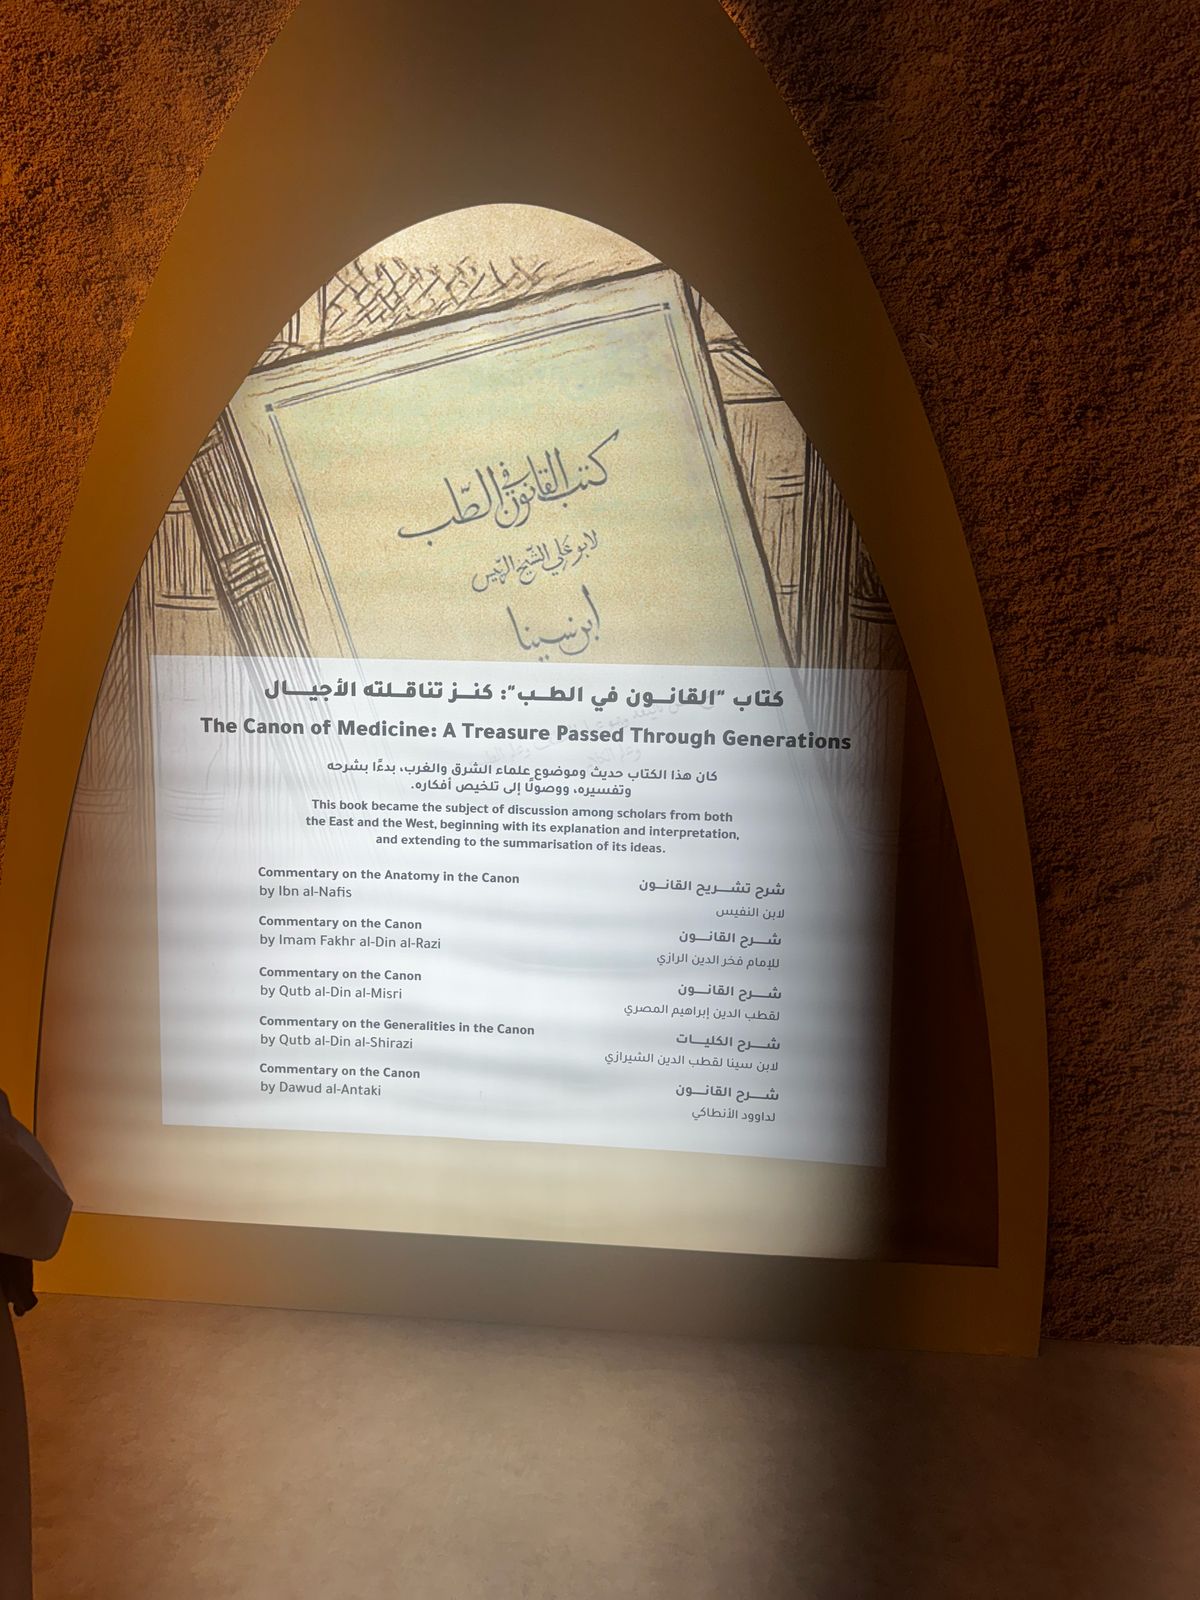 كتاب القانون في الطب
لابو علي الشيخ الرئيس
ابن سينا
كتاب "القانـون في الطـب": كنـز تناقـلته الأجيـال
The Canon of Medicine: A Treasure Passed Through Generations
كان هذا الكتاب حديث وموضوع علماء الشرق والغرب، بدءًا بشرحه
وتفسيره، ووصولًا إلى تلخيص أفكاره.
This book became the subject of discussion among scholars from both
the East and the West, beginning with its explanation and interpretation,
and extending to the summarisation of its ideas.
Commentary on the Anatomy in the Canon
by Ibn al-Nafis
Commentary on the Canon
by Imam Fakhr al-Din al-Razi
Commentary on the Canon
by Qutb al-Din al-Misri
Commentary on the Generalities in the Canon
by Qutb al-Din al-Shirazi
Commentary on the Canon
by Dawud al-Antaki
شرح تشـريح القانـون
لابن النفيس
شـرح القانـون
للإمام فخر الدين الرازي
شـرح القانـون
لقطب الدين إبراهيم المصري
شـرح الكليـات
لابن سينا لقطب الدين الشيرازي
شـرح القانـون
لداوود الأنطاكي